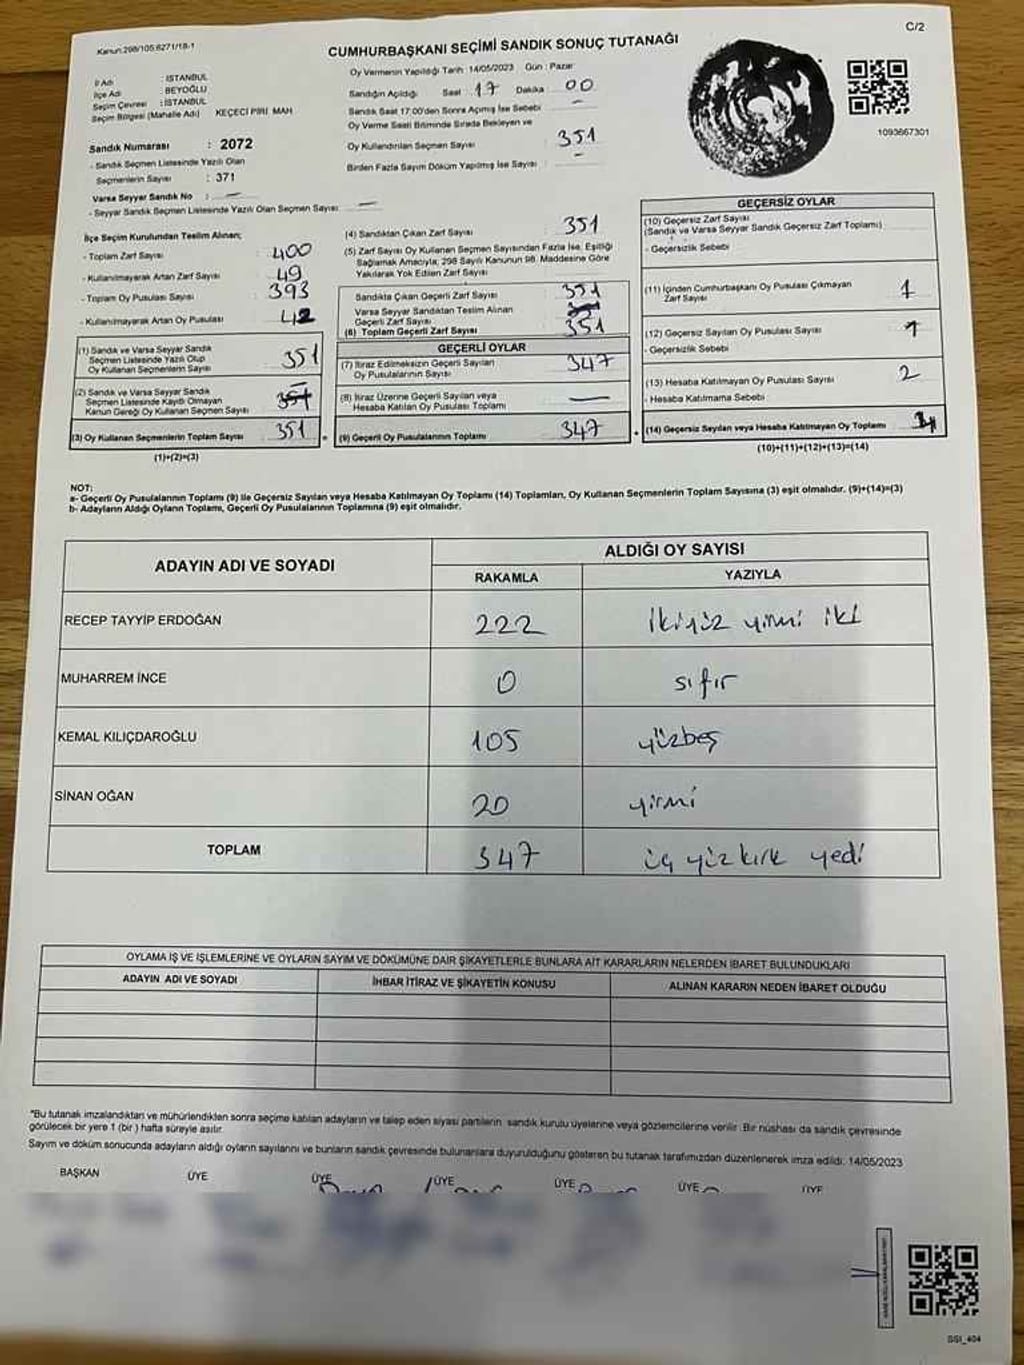 Kanun:298/105,6271/18-1
C/2
CUMHURBAŞKANI SEÇİMİ SANDIK SONUÇ TUTANAĞI
İl Adı : İSTANBUL
İlçe Adı : BEYOĞLU
Seçim Çevresi : İSTANBUL
Seçim Bölgesi (Mahalle Adı) KEÇECİ PİRİ MAH
Sandık Numarası : 2072
- Sandık Seçmen Listesinde Yazılı Olan
Seçmenlerin Sayısı : 371
Varsa Seyyar Sandık No : —
- Seyyar Sandık Seçmen Listesinde Yazılı Olan Seçmen Sayısı —
Oy Vermenin Yapıldığı Tarih: 14/05/2023 Gün : Pazar
Sandığın Açıldığı Saat 17 Dakika 00
Sandık Saat 17:00'den Sonra Açılmış İse Sebebi –
Oy Verme Saati Bitiminde Sırada Bekleyen ve
Oy Kullandırılan Seçmen Sayısı 351
Birden Fazla Sayım Döküm Yapılmış İse Sayısı –
1093667301
İlçe Seçim Kurulundan Teslim Alınan;
- Toplam Zarf Sayısı : 400
- Kullanılmayarak Artan Zarf Sayısı 49
- Toplam Oy Pusulası Sayısı : 393
- Kullanılmayarak Artan Oy Pusulası 42
(1) Sandık ve Varsa Seyyar Sandık
Seçmen Listesinde Yazılı Olup
Oy Kullanan Seçmenlerin Sayısı 351
(2) Sandık ve Varsa Seyyar Sandık
Seçmen Listesinde Kayıtlı Olmayan
Kanun Gereği Oy Kullanan Seçmen Sayısı
(3) Oy Kullanan Seçmenlerin Toplam Sayısı 351
(1)+(2)=(3)
(4) Sandıktan Çıkan Zarf Sayısı 351
(5) Zarf Sayısı Oy Kullanan Seçmen Sayısından Fazla İse, Eşitliği
Sağlamak Amacıyla; 298 Sayılı Kanunun 98. Maddesine Göre
Yakılarak Yok Edilen Zarf Sayısı
Sandıkta Çıkan Geçerli Zarf Sayısı 351
Varsa Seyyar Sandıktan Teslim Alınan
Geçerli Zarf Sayısı
(6) Toplam Geçerli Zarf Sayısı 351
GEÇERLİ OYLAR
(7) İtiraz Edilmeksizin Geçerli Sayılan
Oy Pusulalarının Sayısı 347
(8) İtiraz Üzerine Geçerli Sayılan veya
Hesaba Katılan Oy Pusulası Toplamı —
(9) Geçerli Oy Pusulalarının Toplamı 347
GEÇERSİZ OYLAR
(10) Geçersiz Zarf Sayısı
(Sandık ve Varsa Seyyar Sandık Geçersiz Zarf Toplamı)
- Geçersizlik Sebebi
(11) İçinden Cumhurbaşkanı Oy Pusulası Çıkmayan
Zarf Sayısı 1
(12) Geçersiz Sayılan Oy Pusulası Sayısı 1
- Geçersizlik Sebebi
(13) Hesaba Katılmayan Oy Pusulası Sayısı 2
- Hesaba Katılmama Sebebi
(14) Geçersiz Sayılan veya Hesaba Katılmayan Oy Toplamı
(10)+(11)+(12)+(13)=(14)
NOT:
a- Geçerli Oy Pusulalarının Toplamı (9) ile Geçersiz Sayılan veya Hesaba Katılmayan Oy Toplamı (14) Toplamları, Oy Kullanan Seçmenlerin Toplam Sayısına (3) eşit olmalıdır. (9)+(14)=(3)
b- Adayların Aldığı Oyların Toplamı, Geçerli Oy Pusulalarının Toplamına (9) eşit olmalıdır.
ADAYIN ADI VE SOYADI ALDIĞI OY SAYISI
RAKAMLA YAZIYLA
RECEP TAYYİP ERDOĞAN 222 ikiyüz yirmi iki
MUHARREM İNCE 0 sıfır
KEMAL KILIÇDAROĞLU 105 yüzbeş
SİNAN OĞAN 20 yirmi
TOPLAM 347 üç yüz kırk yedi
OYLAMA İŞ VE İŞLEMLERİNE VE OYLARIN SAYIM VE DÖKÜMÜNE DAİR ŞİKAYETLERLE BUNLARA AİT KARARLARIN NELERDEN İBARET BULUNDUKLARI
ADAYIN ADI VE SOYADI İHBAR İTİRAZ VE ŞİKAYETİN KONUSU ALINAN KARARIN NEDEN İBARET OLDUĞU
*Bu tutanak imzalandıktan ve mühürlendikten sonra seçime katılan adayların ve talep eden siyasi partilerin sandık kurulu üyelerine veya gözlemcilerine verilir. Bir nüshası da sandık çevresinde
görülecek bir yere 1 (bir ) hafta süreyle asılır.
Sayım ve döküm sonucunda adayların aldığı oyların sayılarını ve bunların sandık çevresinde bulunanlara duyurulduğunu gösteren bu tutanak tarafımızdan düzenlenerek imza edildi. 14/05/2023
BAŞKAN ÜYE ÜYE ÜYE ÜYE ÜYE ÜYE
SSI_404